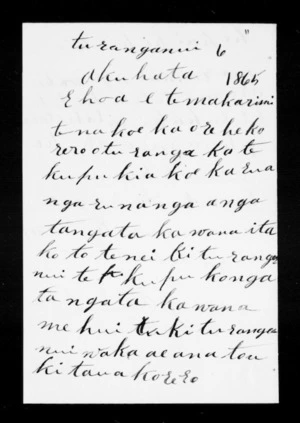 turanganui 6"
Akuhata 1865
E hoa e te makarini
tena koe ka ore he ko
rero o turanga ka te
kupu kia koe ka rua
nga runanga a nga
tangata kawana ita
ko to tenei ki turanga
nui te kupu ko nga
tangata kawana
me hui ki turanga
nui waka ae ana tou
ki taua korero